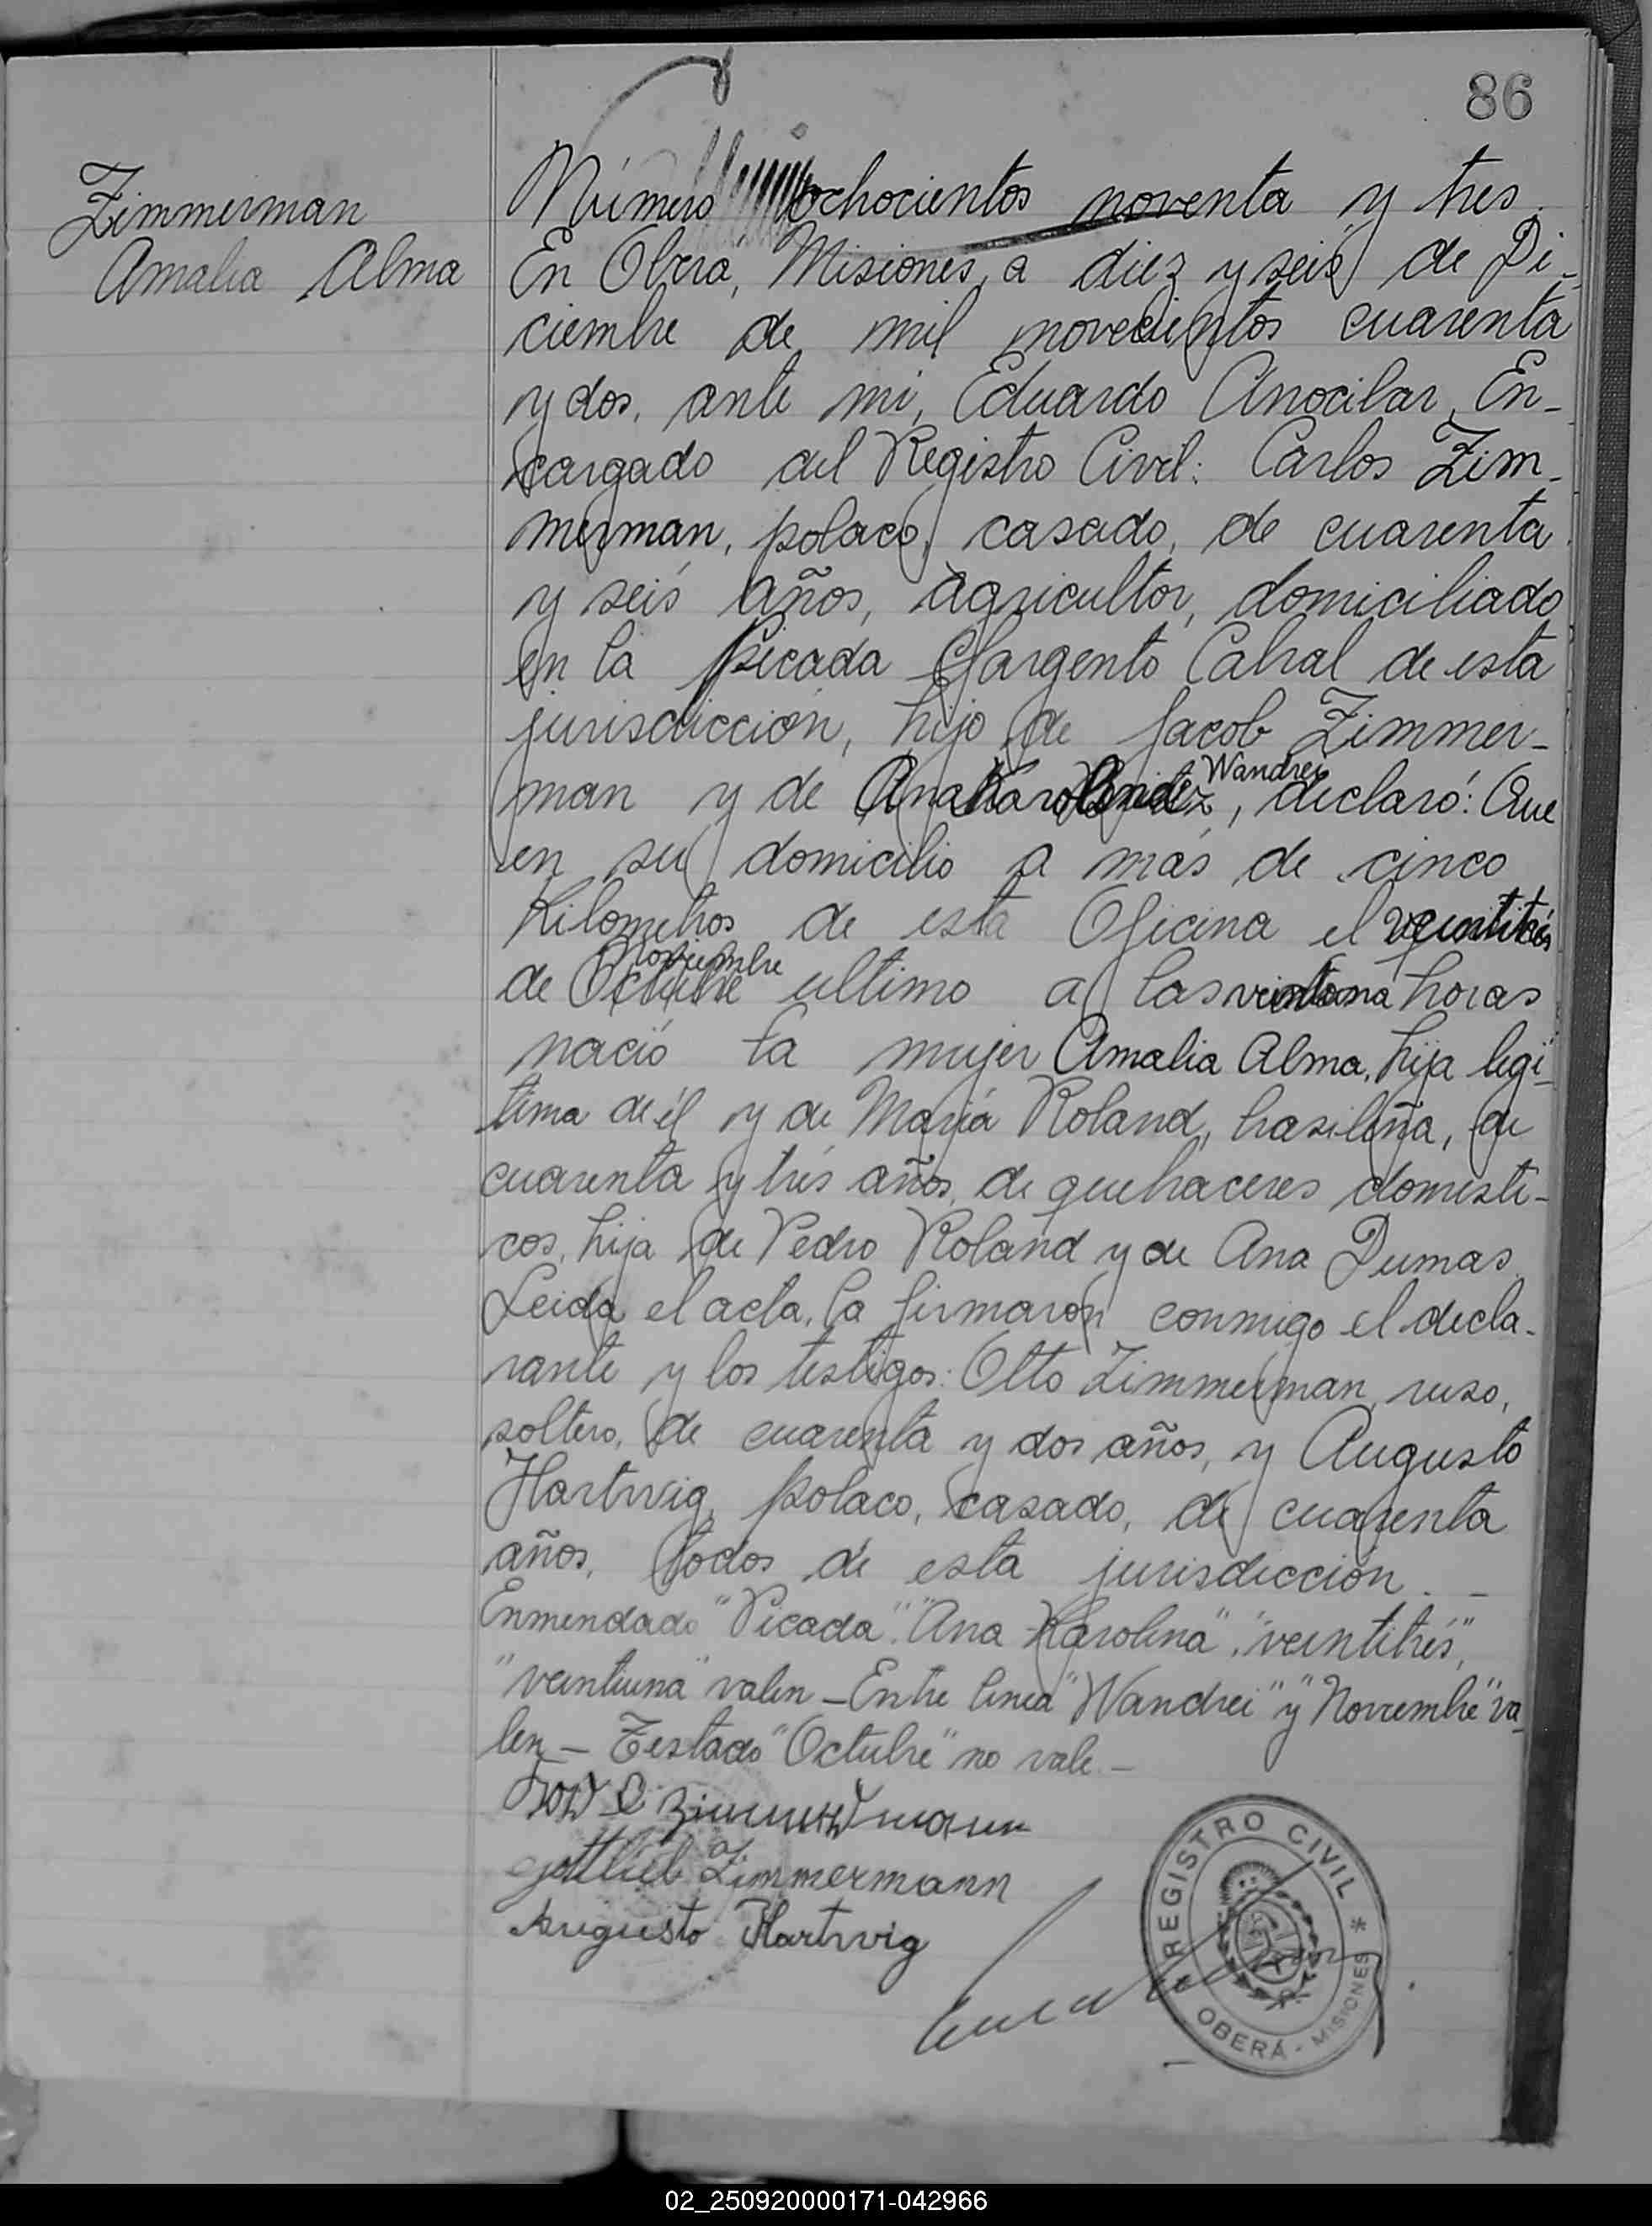 86
Zimmerman
Amalia Alma
Número ochocientos noventa y tres.
En Oberá, Misiones, a diez y seis de Di-
ciembre de mil novecientos cuarenta
y dos, ante mi, Eduardo Anocibar, En-
cargado del Registro Civil: Carlos Zim-
merman, polaco, casado, de cuarenta
y seis años, agricultor, domiciliado
en la Picada Sargento Cabral de esta
jurisdicción, hijo de Jacob Zimmer-
Wandrei
man y de Ana Karolina, declaró: Que
en su domicilio a más de cinco
Kilometros de esta Oficina el veintitrés
Noviembre
de Octubre ultimo a las veintiuna horas
nació la mujer Amalia Alma, hija legí-
tima de él y de María Roland, brasileña, de
cuarenta y trés años, de quehaceres domesti-
cos, hija de Pedro Roland y de Ana Dumas.
Leida el acta, la firmaron conmigo el decla-
rante y los testigos: Otto Zimmerman, ruso,
soltero, de cuarenta y dos años, y Augusto
Hartwig, polaco, casado, de cuarenta
años, todos de esta jurisdicción. -
Enmendado "Picada". "Ana Karolina", "veintitrés",
"veintiuna" valen - Entre linea "Wandrei" y "Noviembre" va-
len - Testado "Octubre" no vale. -
Zimmermann
Gottlieb Zimmermann
Augusto Hartwig
REGISTRO CIVIL *
OBERÁ - MISIONES
02_250920000171-042966